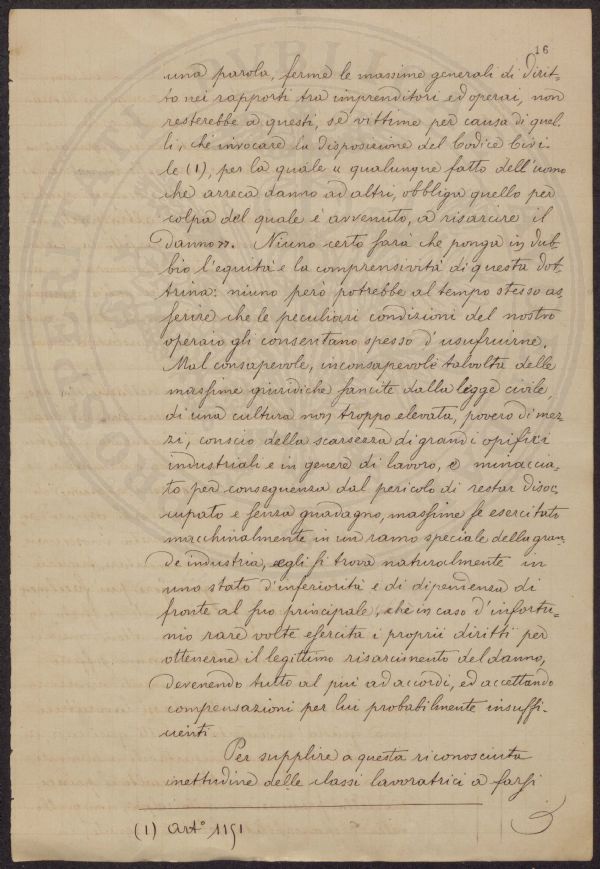 16
una parola, ferme le massime generali di dirit-
to nei rapporti tra imprenditori ed operai, non
resterebbe a questi, se vittime per causa di quel-
li, che invocare la disposizione del Codice Civi-
le (1), per la quale « qualunque fatto dell'uomo
che arreca danno ad altri, obbliga quello per
colpa del quale è avvenuto, a risarcire il
danno ». Niuno certo farà che ponga in dub-
bio l'equità e la comprensività di questa dot-
trina: niuno però potrebbe al tempo stesso as-
serire che le peculiari condizioni del nostro
operaio gli consentano spesso d'usufruirne.
Mal consapevole, inconsapevole talvolta delle
massime giuridiche sancite dalla legge civile,
di una cultura non troppo elevata, povero di mez-
zi, conscio della scarsezza di grandi opifizi
industriali e in genere di lavoro, e minaccia-
to per conseguenza dal pericolo di restar disoc-
cupato e senza guadagno, massime se esercitato
macchinalmente in un ramo speciale della gran-
de industria, egli si trova naturalmente in
uno stato d'inferiorità e di dipendenza di
fronte al suo principale, che in caso d'infortu-
nio rare volte esercita i proprii diritti per
ottenerne il legittimo risarcimento del danno,
devenendo tutto al più ad accordi, ed accettando
compensazioni per lui probabilmente insuffi-
cienti
Per supplire a questa riconosciuta
inettitudine delle classi lavoratrici a farsi
(1) Art.º 1151